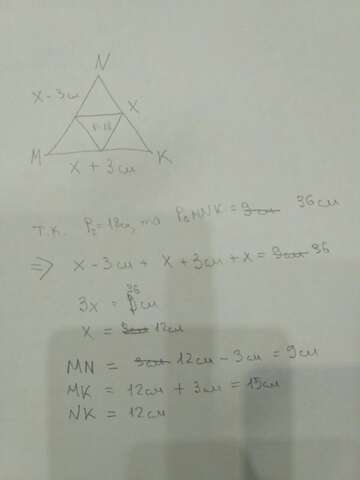 N
X - 3см
X
P=18
M
K
X + 3см
Т.К. P₂=18см, то P△MNK = 9см 36см
=> X - 3см + X + 3см + X = 9см 36
3X = 36 см
X = 9см 12см
MN = 3см 12см - 3см = 9см
MK = 12см + 3см = 15см
NK = 12см